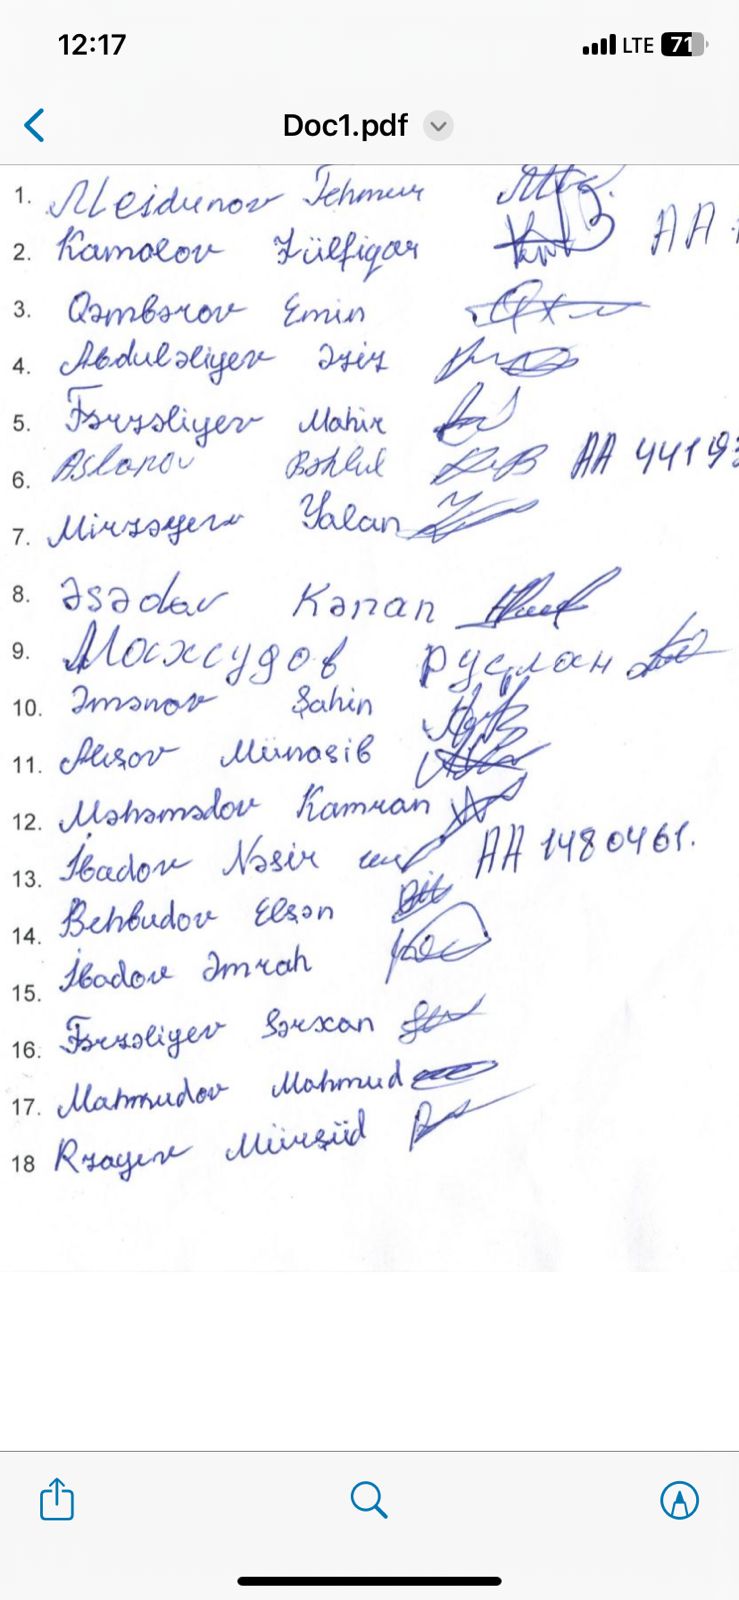 12:17 LTE 71
Doc1.pdf
1. Meidunov Tehmur
2. Kamalov Zülfigar AA
3. Qəmbərov Emin
4. Abduləliyev Əziz
5. Fərzəliyev Mahir
6. Aslanov Bəhlul AA 44193
7. Mirzəyev Yalan
8. Əsədov Kənan
9. Мосхсудов Руслан
10. Əmənov Şahin
11. Alışov Münasib
12. Məhəmədov Kamran
13. İbadov Nəsir AA 1480461.
14. Behbudov Elşən
15. İbadov Əmrah
16. Fərzəliyev Sərxan
17. Mahmudov Mahmud
18 Rzayev Mürşüd